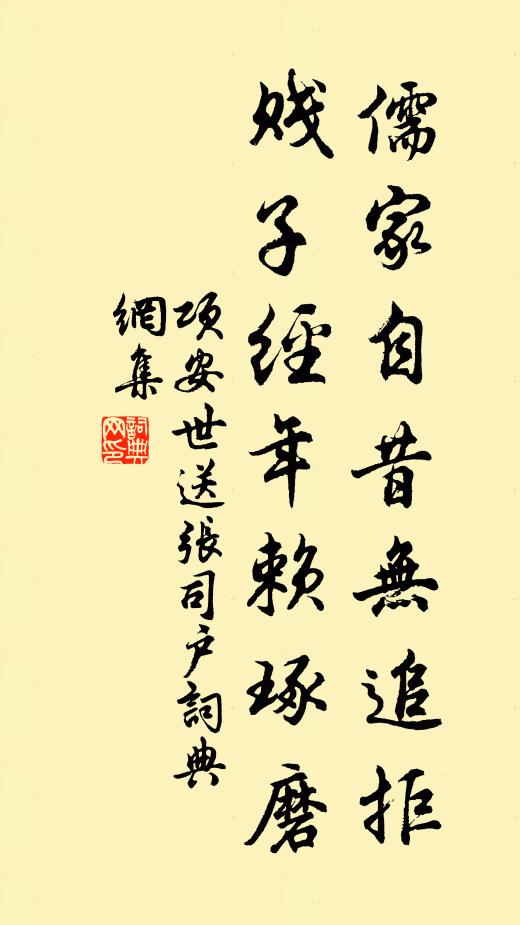 儒家自昔無追拒
賤子經年賴琢磨
項安世送張司戶詞典
網集
詞典
网印